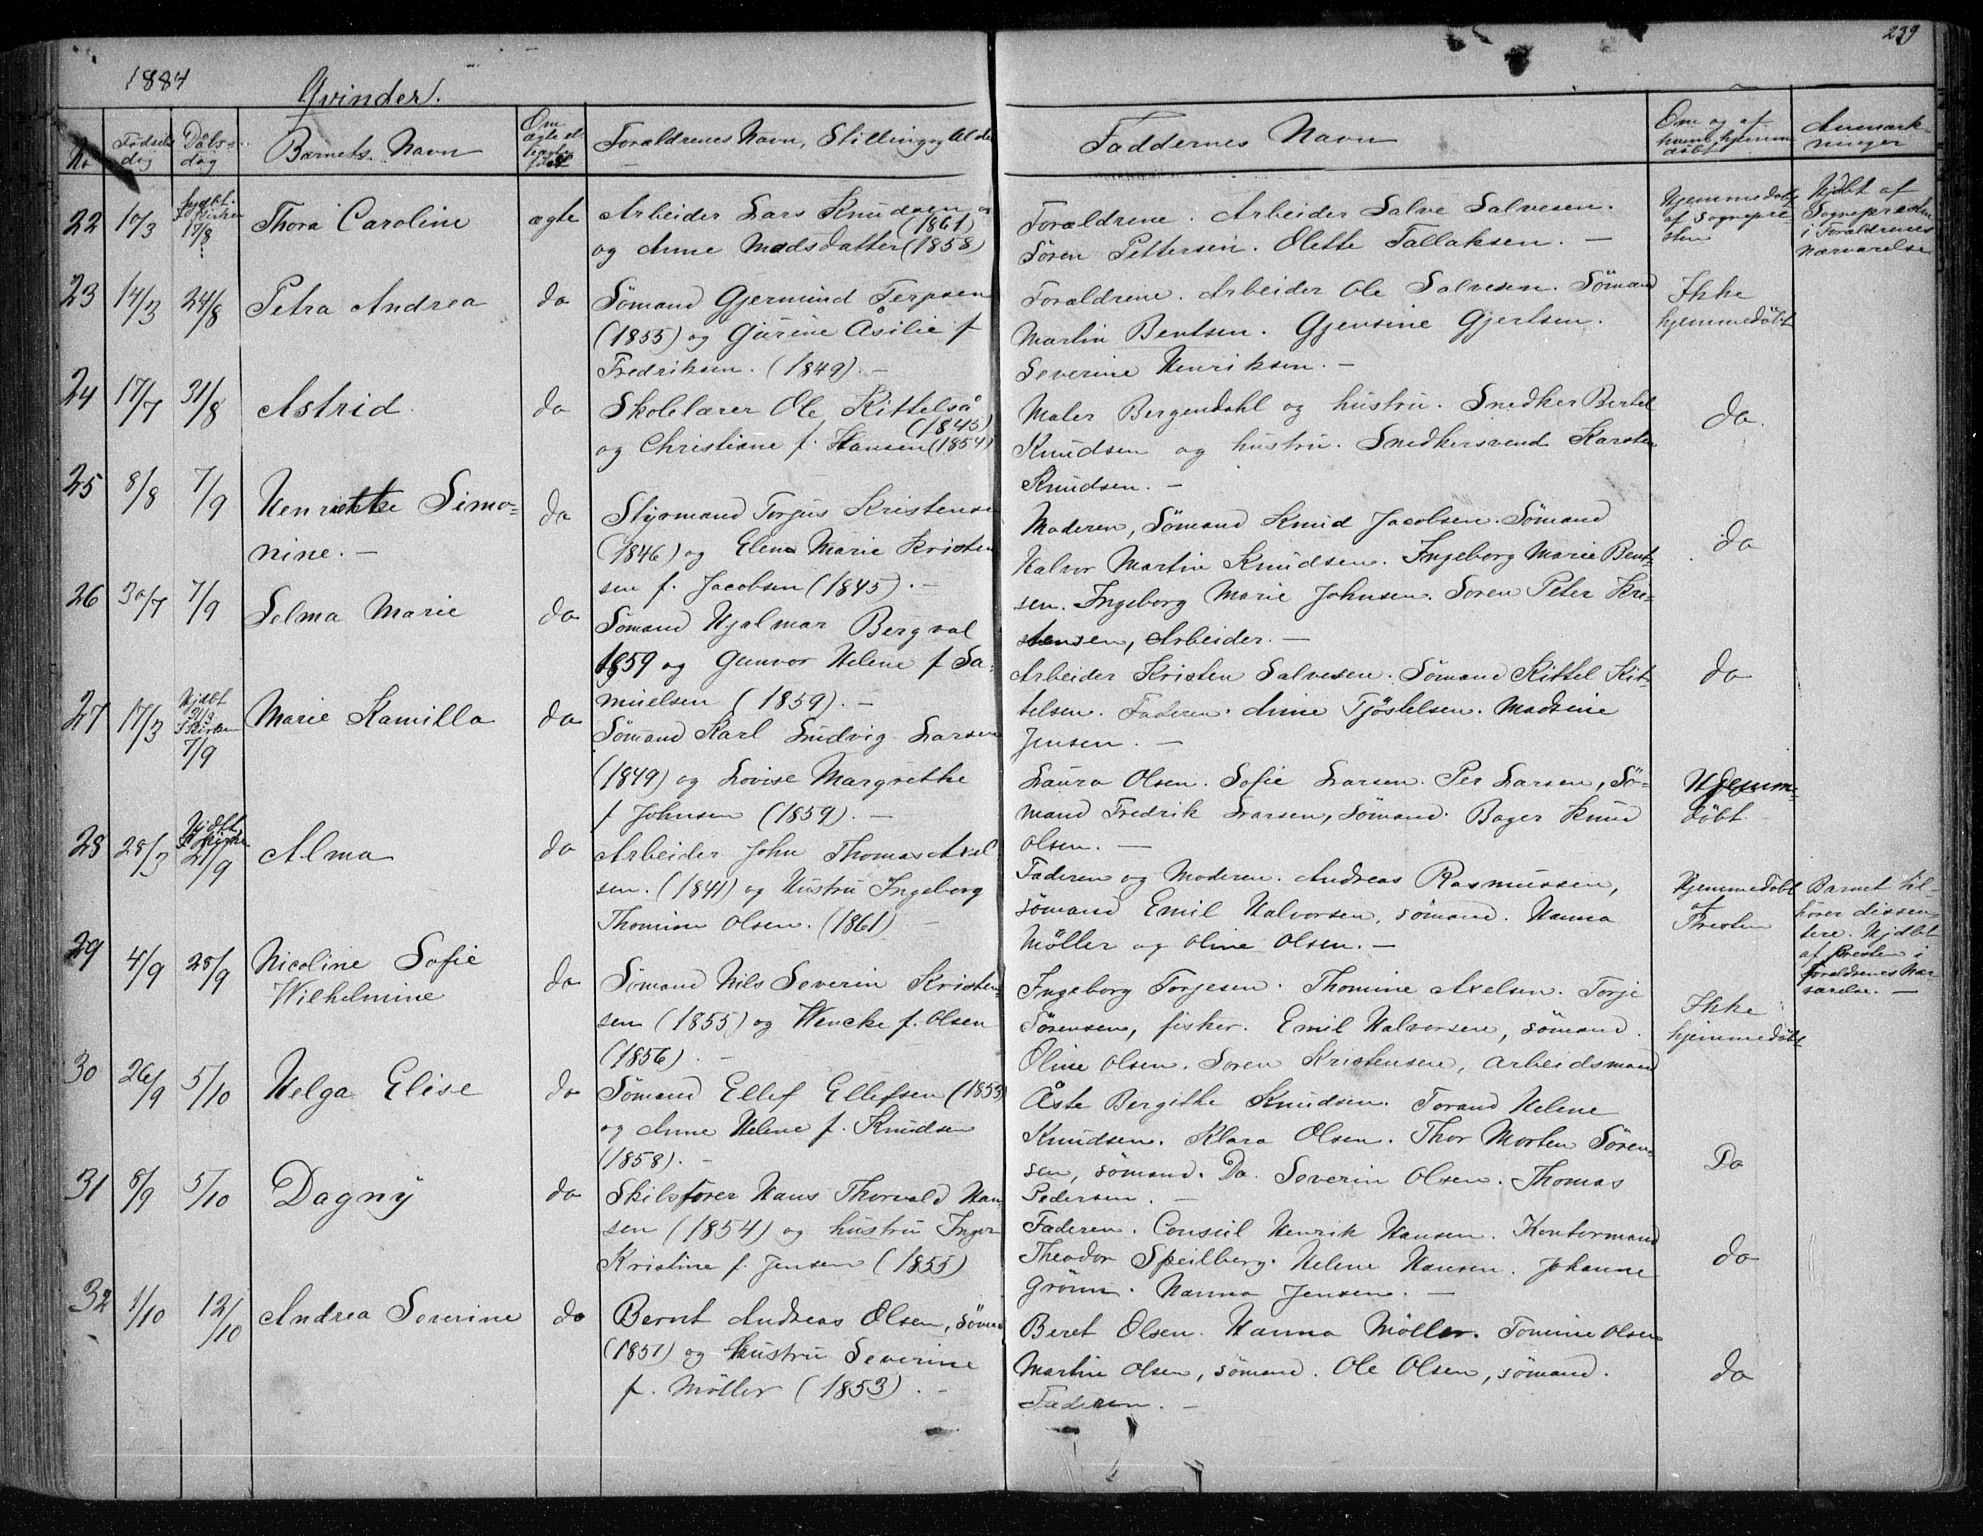 239
1884 Qvinder.
No
Födsels dag
Döbs= dag
Barnets Navn
Om ægte el
Forældrenes Navn, Stilling og Alder
Faddernes Navn
Om og af hvem hjemmedöbt
Anmærk-
ninger
22 10/3 hjdbt. i Kirken 17/8 Thora Caroline ægte
Arbeider Lars Knudsen (1861)
og Anne Madsdatter (1858)
Forældrene. Arbeider Salve Salvesen.
Sören Pettersen. Olette Tallaksen. —
Hjemmedöbt
af Sognepre-
sten
Hjdbt af
Sognepresten
i Forældrenes
Nærværelse
23 14/3 24/8 Petra Andrea do
Sömand Gjermund Terjesen
(1855) og Gurine Åsilie f
Fredriksen. (1849). —
Forældrene. Arbeider Ole Salvesen. Sömand
Martin Bentsen. Gjensine Gjertsen.
Severine Henriksen. —
Ikke
hjemmedöbt
24 17/7 31/8 Astrid do
Skolelærer Ole Kittelså (1845)
og Christiane f. Hansen (1854)
Maler Bergendahl og hustru. Snedker Bertel
Knudsen og hustru. Snedkersvend Karsten
Knudsen. —
do.
25 8/8 7/9 Henriette Simo=
nine. —
do
Styrmand Torjus Kristensen
(1846) og Elena Marie Kristen
sen f. Jacobsen (1845). —
Moderen, Sömand Knud Jacobsen. Sömand
Halvor Martin Knudsen. Ingeborg Marie Bent-
sen. Ingeborg Marie Johnsen. Soren Peter Kri-
stensen, Arbeider. —
do
26 30/7 7/9 Selma Marie do
Sömand Hjalmar Bergval
1859 og Gunvor Helene f Sa-
muelsen (1859). —
Arbeider Kristen Salvesen. Sömand Kittel Kit-
telsen. Faderen. Anne Tjöstelsen. Madsine
Jensen. —
do
27 17/3 Hjdbt 31/3 i Kirken 7/9 Marie Kamilla do
Sömand Karl Ludvig Larsen
(1849) og Lovise Margrethe
f Johnsen (1859). —
Laura Olsen. Sofie Larsen. Per Larsen, Sö-
mand Fredrik Larsen, Sömand. Bager Knud
Olsen. —
Hjemme-
döbt
28 28/3 Hjdbt i Kirke 21/9 Alma do
Arbeider John Thomas Axel
sen. (1841) og Hustru Ingeborg
Thomine Olsen. (1861) —
Faderen og Moderen. Andreas Rasmussen,
sömand Emil Halvorsen, sömand. Hanna
Möller og Oline Olsen. —
Hjemmedöbt
af
Presten
Barnet til-
hörer dissen=
tere. Hjdbt
af Presten i
Forældrenes Nær
værelse. —
29 4/9 28/9 Nicoline Sofie
Wilhelmine
do
Sömand Nils Severin Kristen-
sen (1855) og Wencke f. Olsen
(1856). —
Ingeborg Torjesen. Thomine Axelsen. Torje
Sörensen, fisker. Emil Halvorsen, sömand.
Oline Olsen. Soren Kristensen, arbeidsmand
Ikke
hjemmedöbt
30 26/9 5/10 Helga Elise do
Sömand Ellef Ellefsen (1853)
og Anne Helene f. Knudsen
(1858). —
Åste Bergithe Knudsen. Torand Helene
Knudsen. Klara Olsen. Thor Morten Sören-
sen, sömand. Do. Severin Olsen. Thomas
Pedersen. —
Do
31 8/9 5/10 Dagny do
Skibsförer Hans Thorvald Han
sen (1854) og hustru Inger
Kristine f. Jensen (1855)
Faderen. Consul Henrik Hansen. Kontormand
Theodor Speilberg. Helene Hansen. Johanne
Grönn. Hanna Jensen. —
do
32 1/10 12/10 Andrea Severine do
Bernt Andreas Olsen, sömd
(1851) og Hustru Severine
f. Möller (1853). —
Beret Olsen. Hanna Möller. Tomine Olsen
Martin Olsen, sömand. Ole Olsen, sömand.
Faderen. —
do